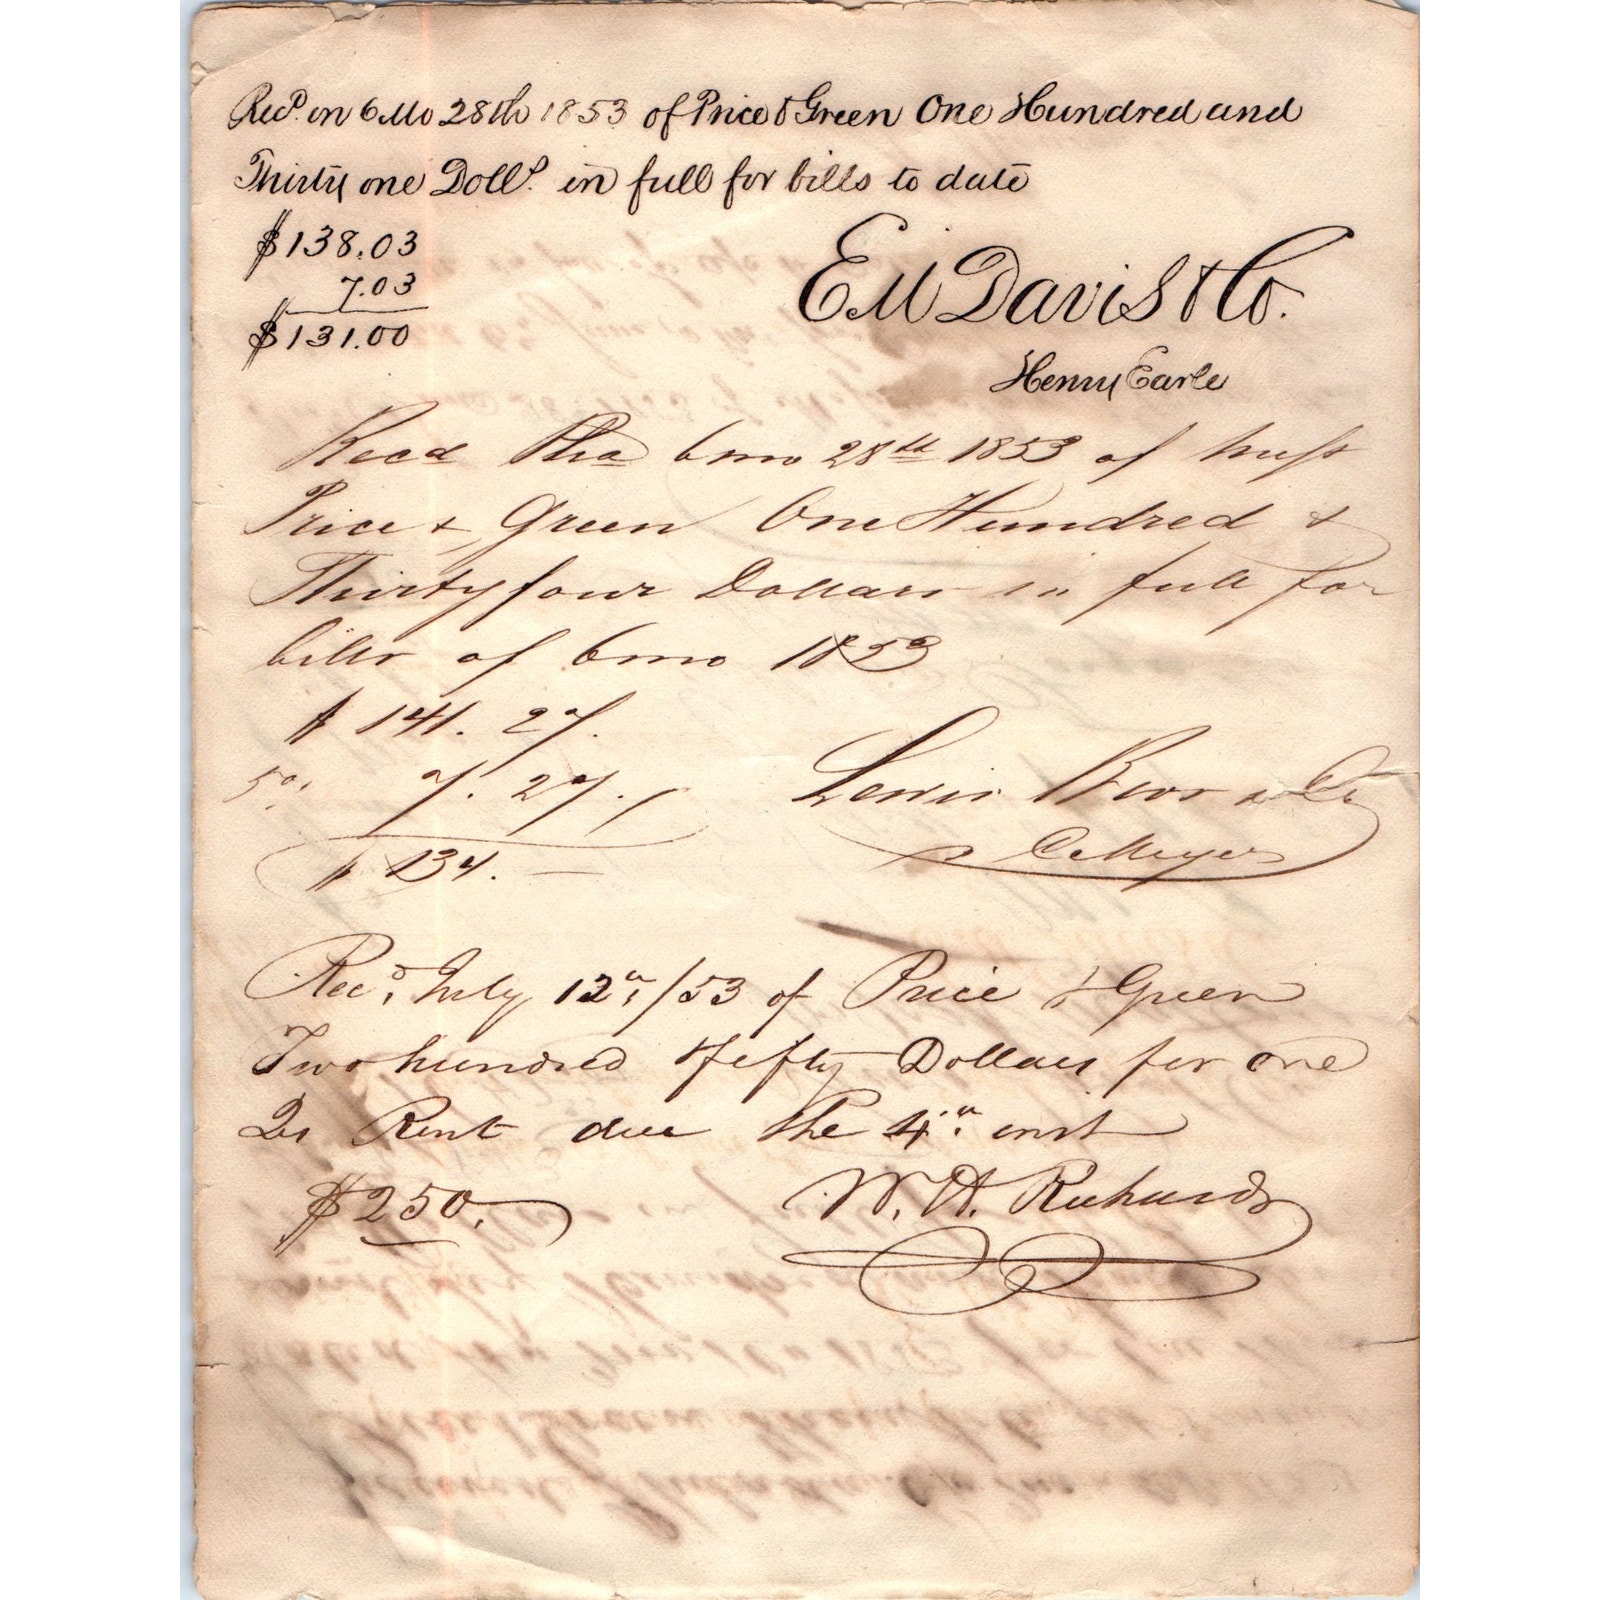 Recd. on 6 Mo 28th 1853 of Price & Green One Hundred and
Thirty one Dolls. in full for bills to date
$138.03
7.03
$131.00
E M Davis & Co.
Henry Earle
Recd Pha 6 mo 28th 1853 of Mess
Price & Green One Hundred &
Thirty four Dollars in full for
bills of 6 mo 1853
$ 141. 27.
7. 27.
$ 134. —
Lewis & Co
C Meyer
Recd. July 12th/53 of Price & Green
Two hundred & fifty Dollars for one
Qr Rent due the 4th inst
$250.
W. H. Richards